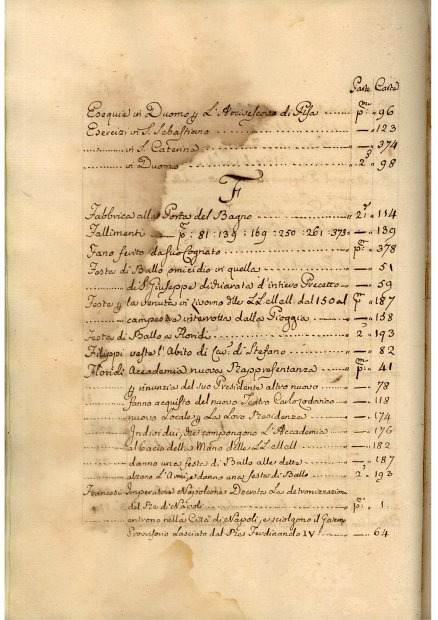 Parte Carte
Esequie in Duomo p l'Arcivescovo di Pisa .......... " p.ma " 96
Esercizi in S. Sebastiano .......... " — " 123
.......... in S. Caterina .......... " — " 374
.......... in Duomo .......... " 2.a " 98
F
Fabbrica alla Porta del Bagno .......... " 2.a " 114
Fallimenti — p.ma : 81 : 139 : 169 : 250 : 261 : 373 — " 139
Fano ferito da suo Cognato .......... " p.ma " 378
Festa di Ballo omicidio in quella .......... " — " 51
.......... di S. Giuseppe dichiarata d'intiero Precetto .......... " — " 59
Feste p la venuta in Livorno delle LL. MM. dal 150 al " p.ma " 187
.......... campestra interrotta dalla Pioggia .......... " — " 138
Festa di Ballo a Floridi .......... " 2.a " 193
Filippi veste l'Abito di Cav. di S. Stefano .......... " — " 82
Floridi Accademia nuova Rappresentanza .......... " p.ma " 41
.......... rinunzia del suo Presidente altro nuovo .......... " — " 78
.......... fanno acquisto del nuovo Teatro Carlo Lodovico .......... — " 118
.......... nuovo Locale p la Loro Residenza .......... " — " 174
.......... Individui, che compongono L'Accademia .......... " — " 176
.......... al bacio della Mano delle LL. MM. .......... " — " 182
.......... danno una festa di Ballo alle dette .......... " — " 187
.......... alzano L'Armi, e danno una festa di Ballo .......... " 2.a " 193
Francesi Imperatore Napoleone Decreta La detronizzazione
.......... del Re di Napoli .......... " p.ma " 1
.......... entrono nella Città di Napoli, e sciolgono il Governo
.......... Provvisorio Lasciato dal Re Ferdinando IV .......... " — " 64